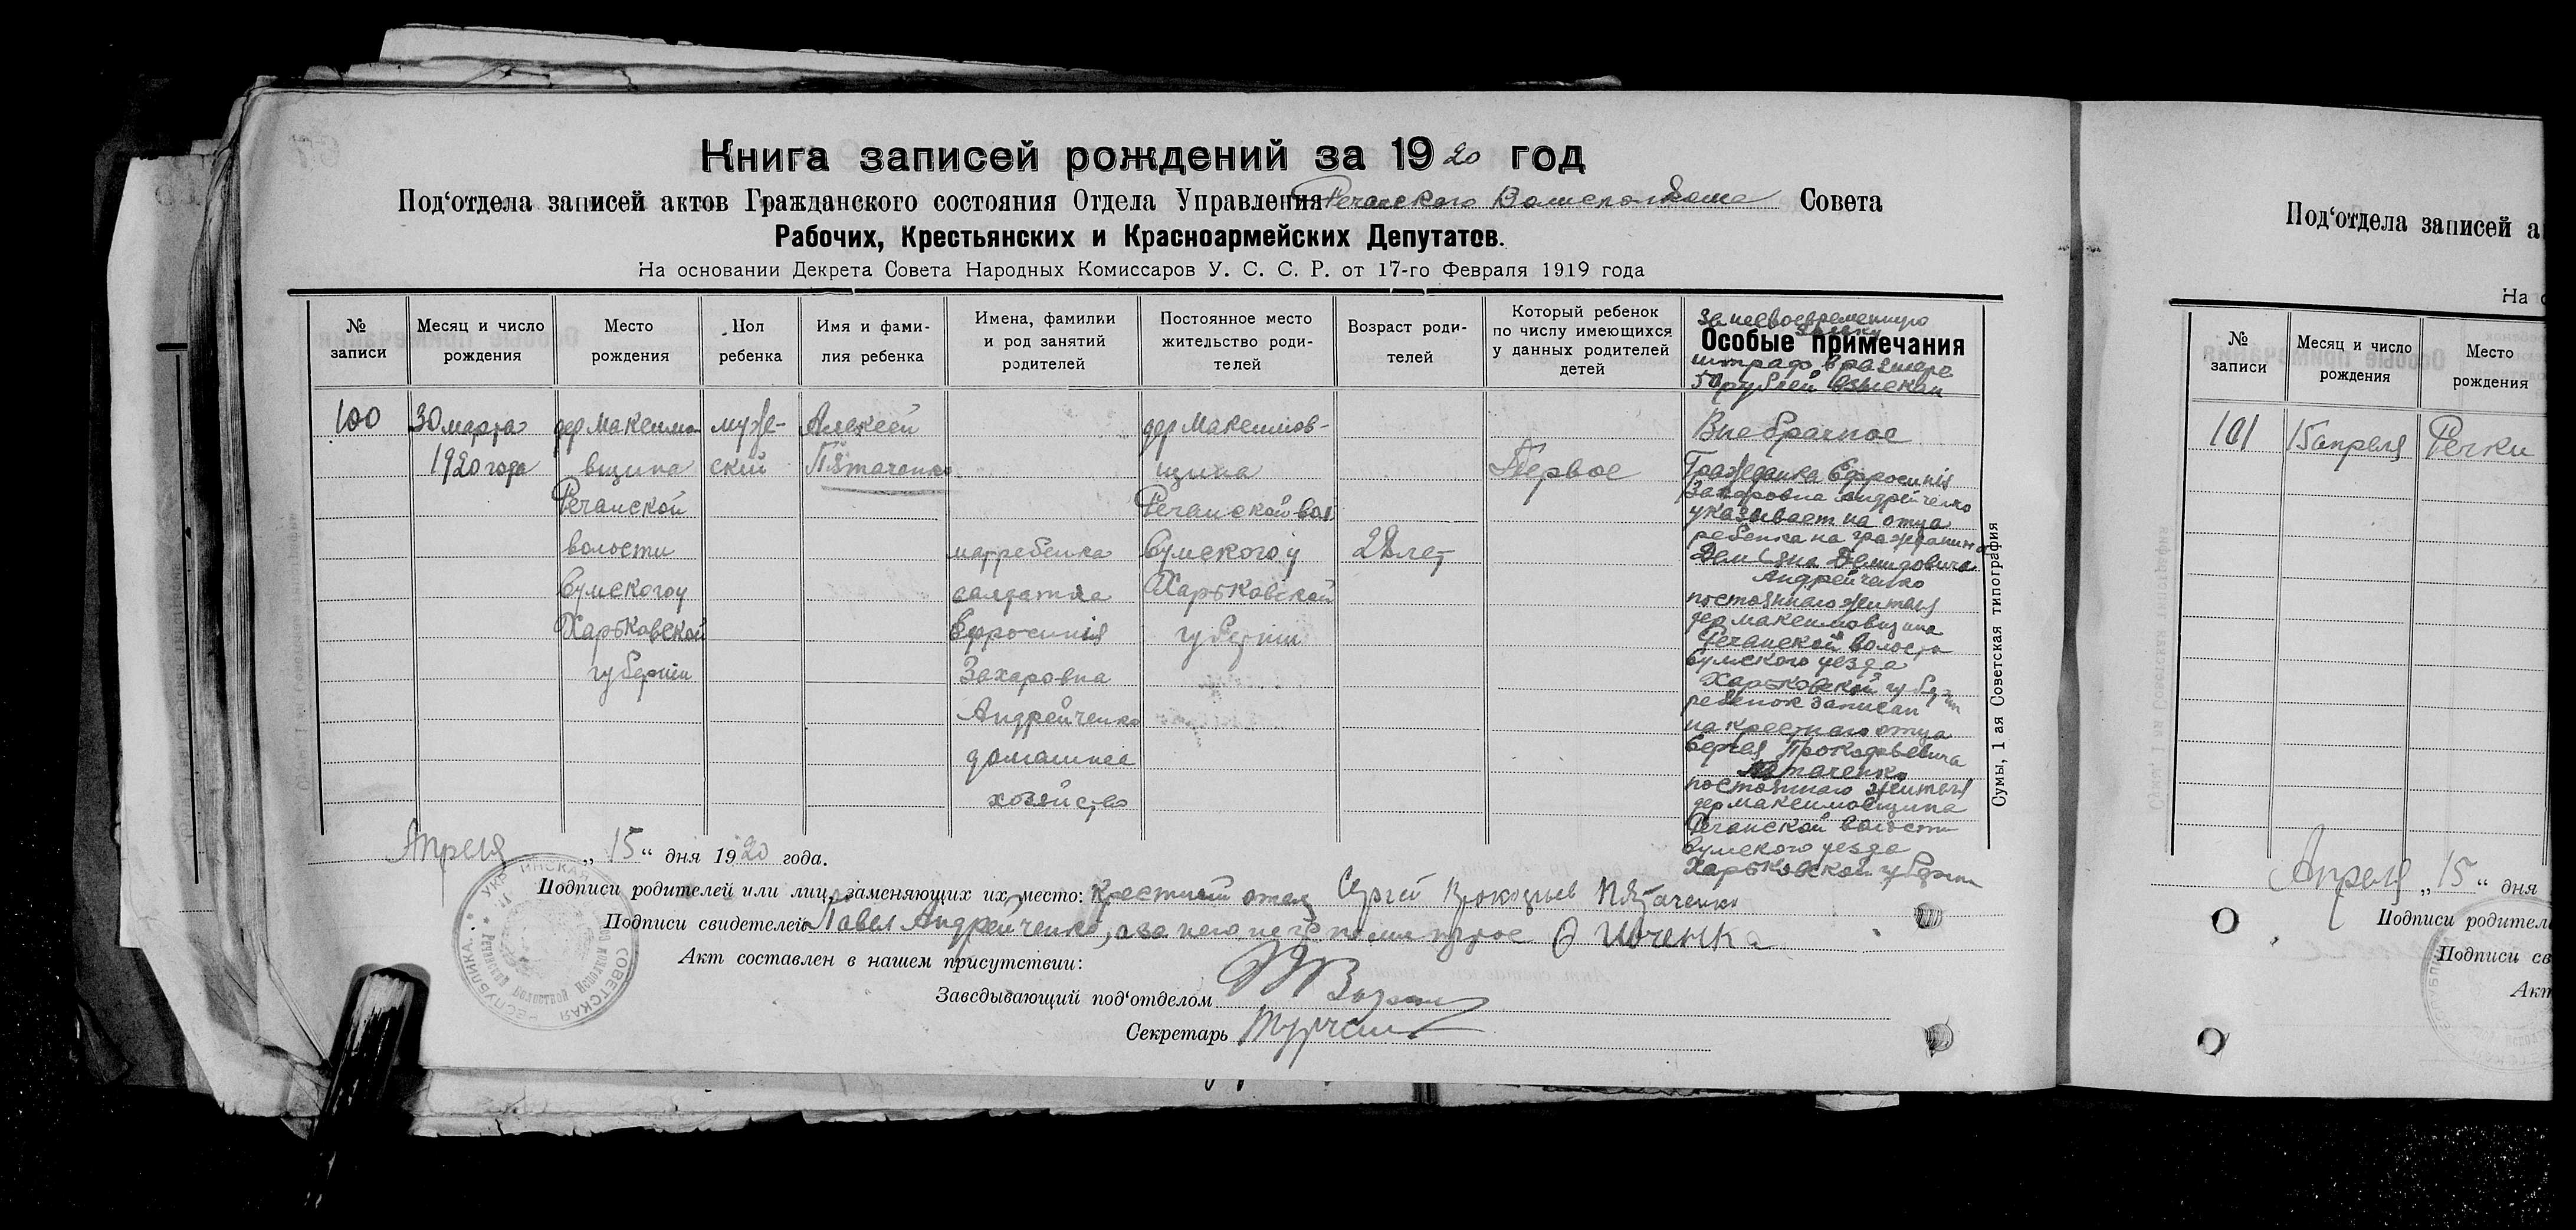 Книга записей рождений за 1920 год
Под‘отдела записей актов Гражданского состояния Отдела Управления Речанского Волисполкома Совета
Рабочих, Крестьянских и Красноармейских Депутатов.
На основании Декрета Совета Народных Комиссаров У. С. С. Р. от 17-го Февраля 1919 года
№ записи
Месяц и число рождения
Место рождения
Пол ребенка
Имя и фами-
лия ребенка
Имена, фамилии
и род занятий
родителей
Постоянное место
жительство роди-
телей
Возраст роди-
телей
Который ребенок
по числу имеющихся
у данных родителей
детей
За несвоевременную
заявку
Особые примечания
штраф в размере
50 рублей взыскан
100
30 марта
1920 года
дер Максимо
вщина
Речанской
волости
Сумского у
Харьковской
губернии
муж-
ской
Алексей
Пятаченко
мат ребенка
солдатка
Ефросиния
Захаровна
Андрейченко
домашнее
хозяйство
дер Максимов-
щина
Речанской вол
Сумского у
Харьковской
губернии
28 лет
Первое
Внебрачное
Гражданка Ефросиния
Захаровна Андрейченко
указывает на отца
ребенка на гражданина
Демьяна Демидовича
Андрейченко
постоянного жителя
дер Максимовщина
Речанской волости
Сумского уезда
Харьковской губерн
ребенок записан
на крестного отца
Сергея Прокофьевича
Пятаченко
постоянного жителя
дер Максимовщина
Речанской волости
Сумского уезда
Харьковской губерни
Сумы, 1 ая Советская типография
Апреля „15“ дня 1920 года.
Подписи родителей или лиц, заменяющих их место: Крестный отец Сергей Прокофьев Пятаченко
Подписи свидетелей Павел Андрейченко, а за него негр по сим
Акт составлен в нашем присутствии:
Заведывающий под‘отделом
Секретарь
УКРАИНСКАЯ СОВЕТСКАЯ РЕСПУБЛИКА
Речанский Волостной Исполком
Под‘отдела записей а
На о
№ записи
Месяц и число рождения
Место рождения
101
15 апреля
Речки
Апреля „15“ дня
Подписи родител
Подписи св
Акт